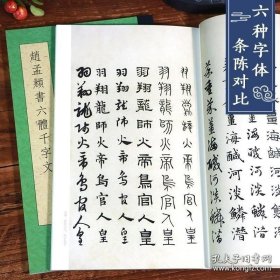 六种字体
条陈对比
薑海鹹河淡鱗潛
薑海鹹河淡鱗潛
羽翔龍師火帝鳥官人皇
羽翔龍師火帝鳥官人皇
羽翔龍師火帝鳥官人皇
羽翔龍師火帝鳥官人皇
羽翔龍師火帝鳥官人皇
羽翔龍師火帝鳥官人皇
趙孟頫書六體千字文